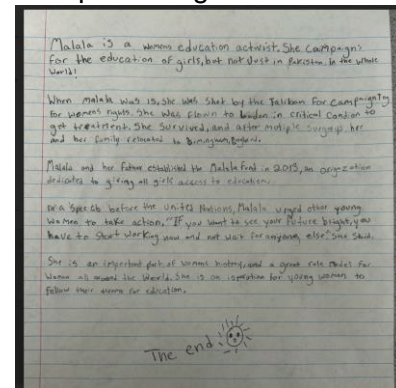 Malala is a womens education activist. She campaigns
for the education of girls, but not Just in Pakistan. In the whole
World!
When Malala was 15, she was shot by the Taliban for campaigning
for womens rights. She was flown to London in critical Condion to
get treatment. She Survived, and after motiple surgarys, her
and her family relocated to Birmingham, England.
Malala and her father established the Malala Fund in 2013, an
dedicated to giving all girls access to education.
In a Speech before the United Nations, Malala urged other young
Women to take action. "If you want to see your future bright, you
have to Start working now and not wait for anyone else" She Said.
She is an important part of womens history, and a great role model for
Women all around the World. She is an for young women to
follow their dreams for education.
The end!